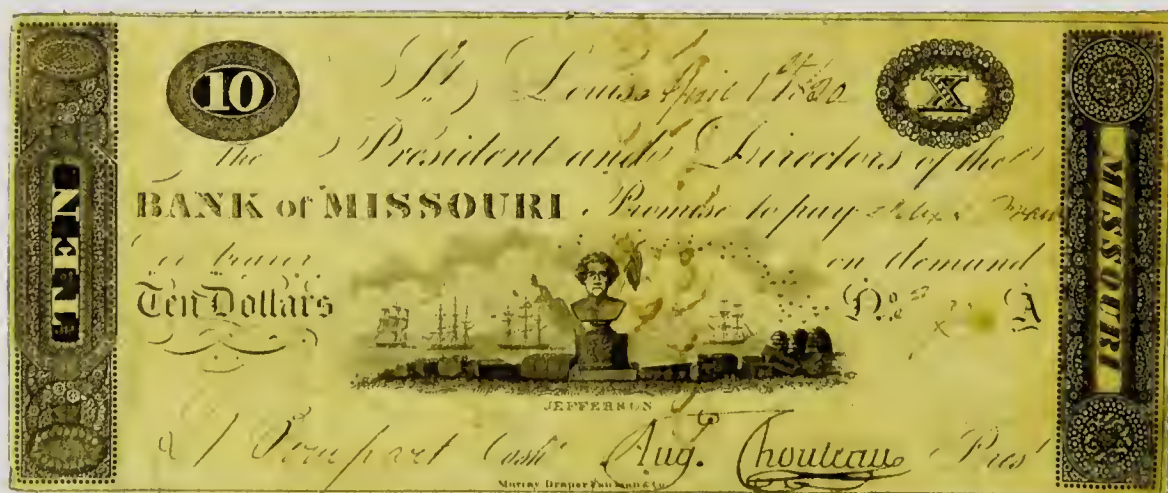 10 St. Louis April 1st 1820 X
the President and Directors of the
BANK of MISSOURI Promise to pay
or bearer on demand
Ten Dollars No. A
JEFFERSON
Cash. Aug. Chouteau Prest
Murray Draper Fairman & Co.
TEN
MISSOURI